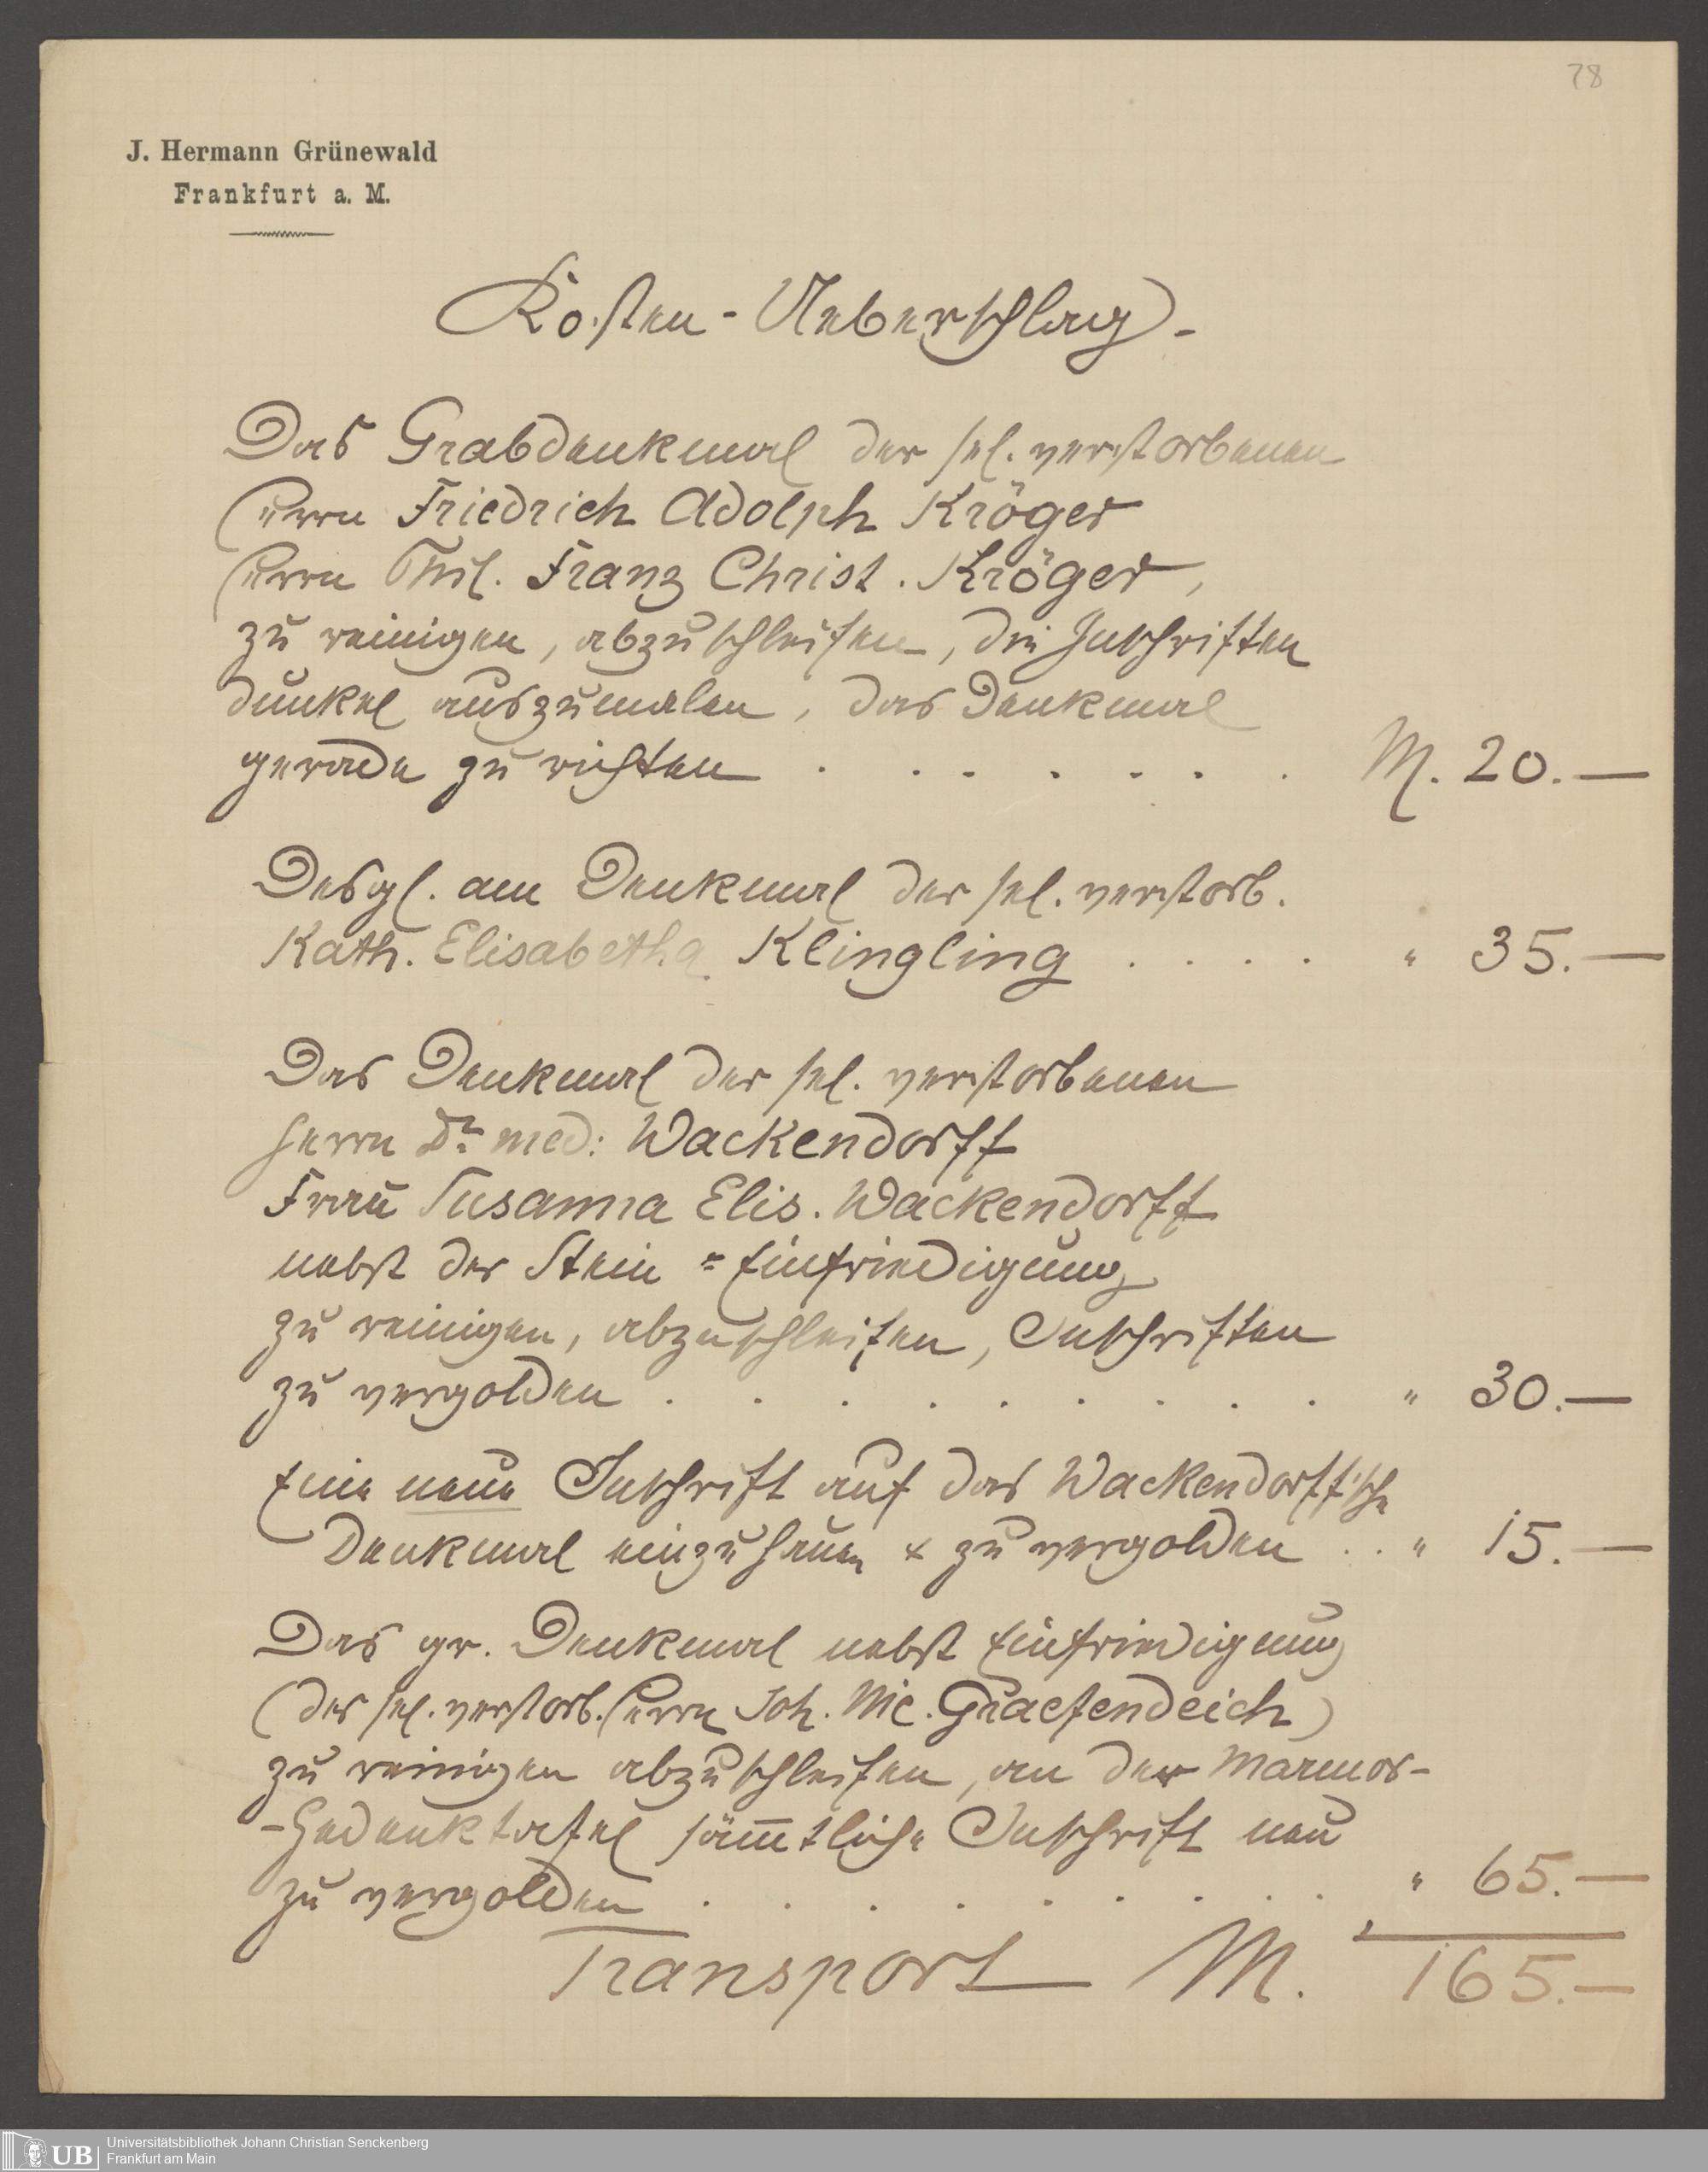 78
J. Hermann Grünewald
Frankfurt a. M.
Kosten-Ueberschlag.
Das Grabdenkmal der sel. verstorbenen
Herrn Friedrich Adolph Kröger
Herrn Phil. Franz Christ. Kröger,
zu reinigen, abzuschleifen, die Inschriften
dunkel auszumalen, das Denkmal
gerade zu richten . . . . . . . M. 20.—
Desgl. am Denkmal der sel. verstorb.
Kath. Elisabetha Klingling . . . . " 35.—
Das Denkmal der sel. verstorbenen
Herrn Dr. med: Wackendorff
Frau Susanna Elis. Wackendorff
nebst der Stein=Einfriedigung
zu reinigen, abzuschleifen, Inschriften
zu vergolden . . . . . . . . . " 30.—
Eine neue Inschrift auf das Wackendorff'sche
Denkmal einzuhauen & zu vergolden . . " 15.—
Das gr. Denkmal nebst Einfriedigung
(der sel. verstorb. Herrn Joh. Nic. Graefendeich)
zu reinigen abzuschleifen, an der Marmor-
-Gedenktafel säm̅tliche Inschrift neu
zu vergolden . . . . . . . . " 65.—
Transport M. 165.—
UB
Universitätsbibliothek Johann Christian Senckenberg
Frankfurt am Main